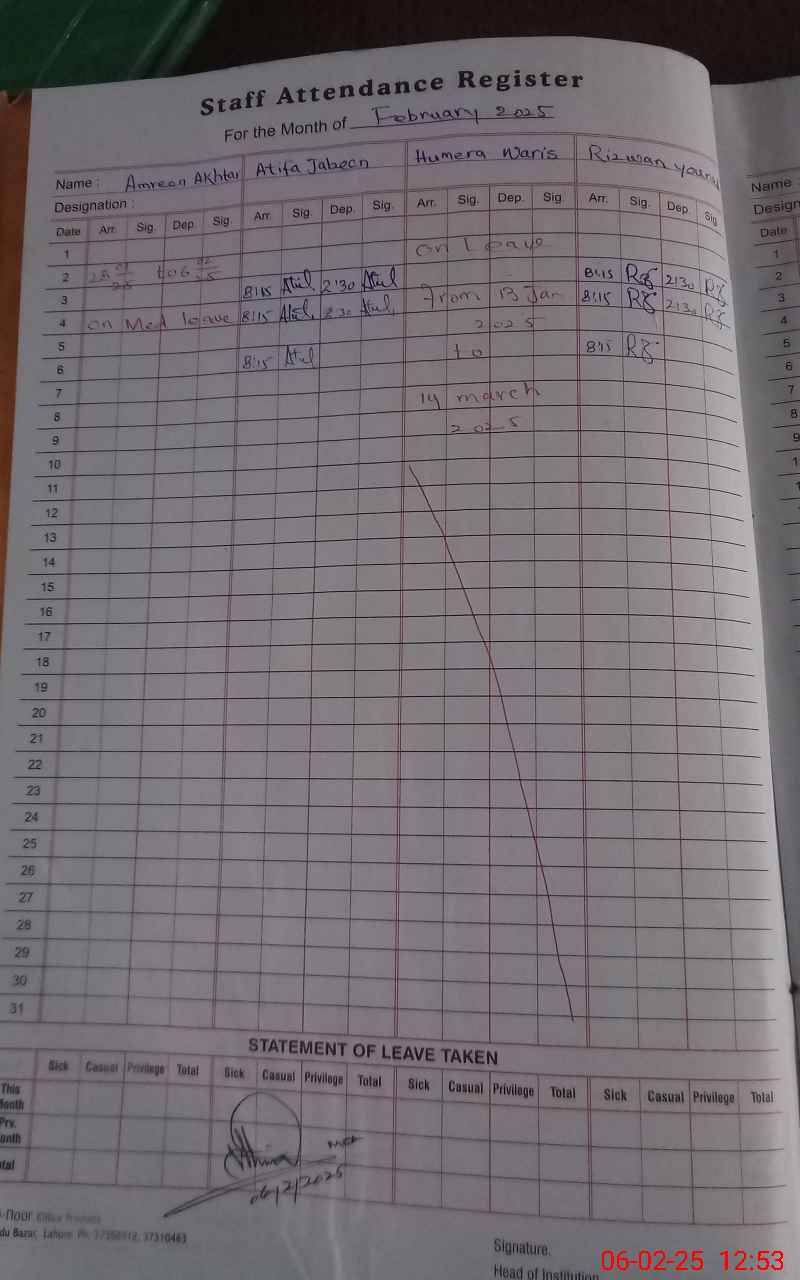 Staff Attendance Register
For the Month of February 2025
Name : Amreen Akhtar Atifa Jabeen Humera Waris Rizwan
Designation :
Date Arr. Sig. Dep. Sig. Arr. Sig. Dep. Sig. Arr. Sig. Dep. Sig. Arr. Sig. Dep. Sig.
1 on Leave
2
3 8:15 2:30 from 13 Jan 8:15 2:30
4 on Med leave 8:15 2:30 2025 8:15 2:30
5
6 8:15 to 8:15
7
8 14 march
9 2025
10
11
12
13
14
15
16
17
18
19
20
21
22
23
24
25
26
27
28
29
30
31
STATEMENT OF LEAVE TAKEN
Sick Casual Privilege Total Sick Casual Privilege Total Sick Casual Privilege Total Sick Casual Privilege Total
This
Month
Prv.
06/2/2025
Bazar, Lahore Ph: 37310463
Signature.
Head of Institution
06-02-25 12:53
Name
Date
1
2
3
4
5
6
7
8
9